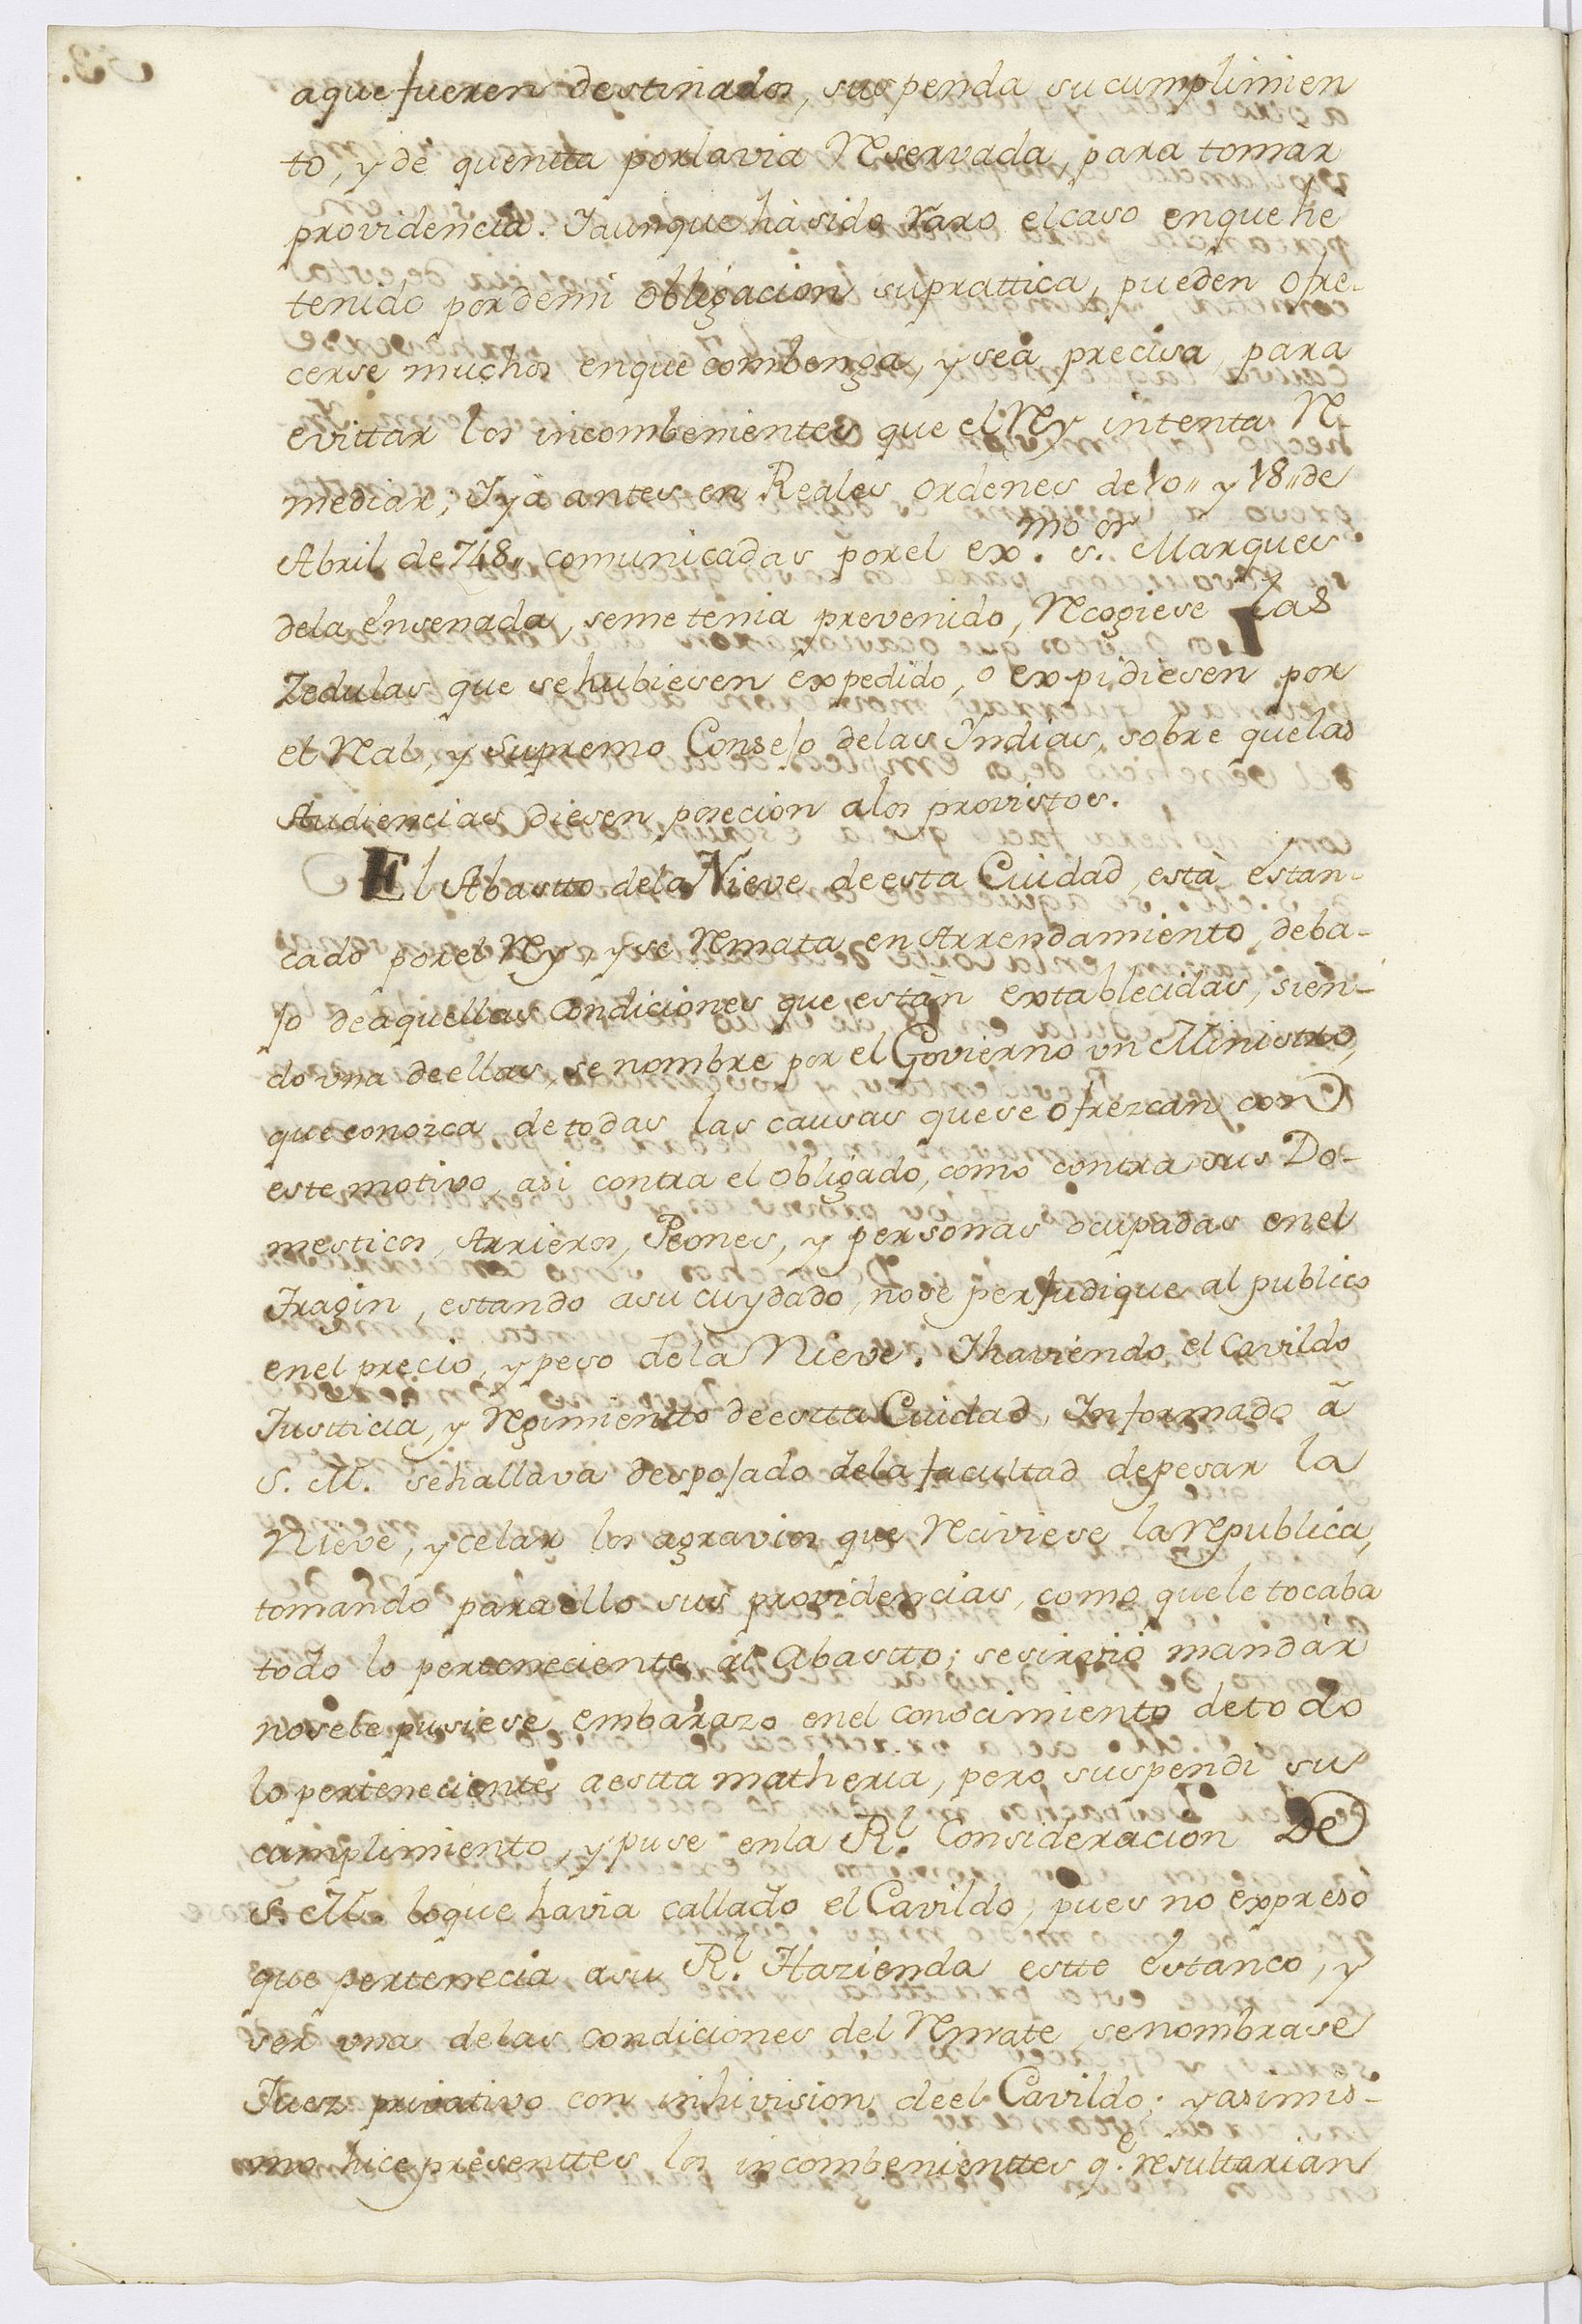 aque fueren destinados, suspenda su cumplimien
to, y dè quentta por la via Reservada, para tomar
providencia. Y aunque hà sido raro el caso en que hè
tenido por de mi obligacion su prattica, pueden ofre-
cerse muchos en que combenga, y sea precisa, para
evittar los incombenientes que el Rey intenta Re-
mediar; Y yà antes en Reales ordenes de 10,, y 18,, de
Abril de 748,, comunicadas por el ex.mo s.or Marques
dela ensenada, seme tenia prevenido, Recogiese las
Zedulas que se hubiesen expedido, ò expidiesen por
el Real, y Supremo Consejo delas Yndias, sobre que las
Audiencias diesen posecion alos provistos.
El Abastto dela Nieve de esta Ciudad, està estan-
cado por el Rey, y se Remata en Arrendamiento, deba-
jo de aquellas condiciones que estàn extablecidas, sien-
do vna de ellas, se nombre por el Govierno vn Ministro,
que conozca de todas las causas que se ofrezcan con
este motivo, asi contra el obligado, como contra sus Do-
mesticos, Arrieros, Peones, y personas ocupadas en el
Tragin, estando a su cuydado, nose perjudique al publico
en el precio, y peso dela Nieve. Y haviendo el Cavildo
Justticia, y Regimientto de estta Ciudad, Informado à
S. M. se hallava despojado dela facultad de pesar la
Nieve, y celar los agravios que Reciviese la Republica,
tomando para ello sus providencias, como que le tocaba
todo lo perteneciente al Abastto; se sirviò mandar
nosele pusiese embarazo en el conocimiento de todo
lo perteneciente a estta matheria, pero suspendi su
cumplimiento, y puse en la R.l Consideracion De
S. M. lo que havia callado el Cavildo, pues no expresò
que pertenecia a su R.l Hazienda estte estanco, y
ser vna delas condiciones del Remate se nombrase
Juez privativo con inhivision de el Cavildo; y asimis-
mo hice presenttes los incombenienttes q.e resultarian